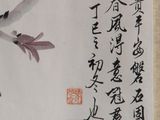 貴平安磐石固
春風得意冠
丁巳之初冬